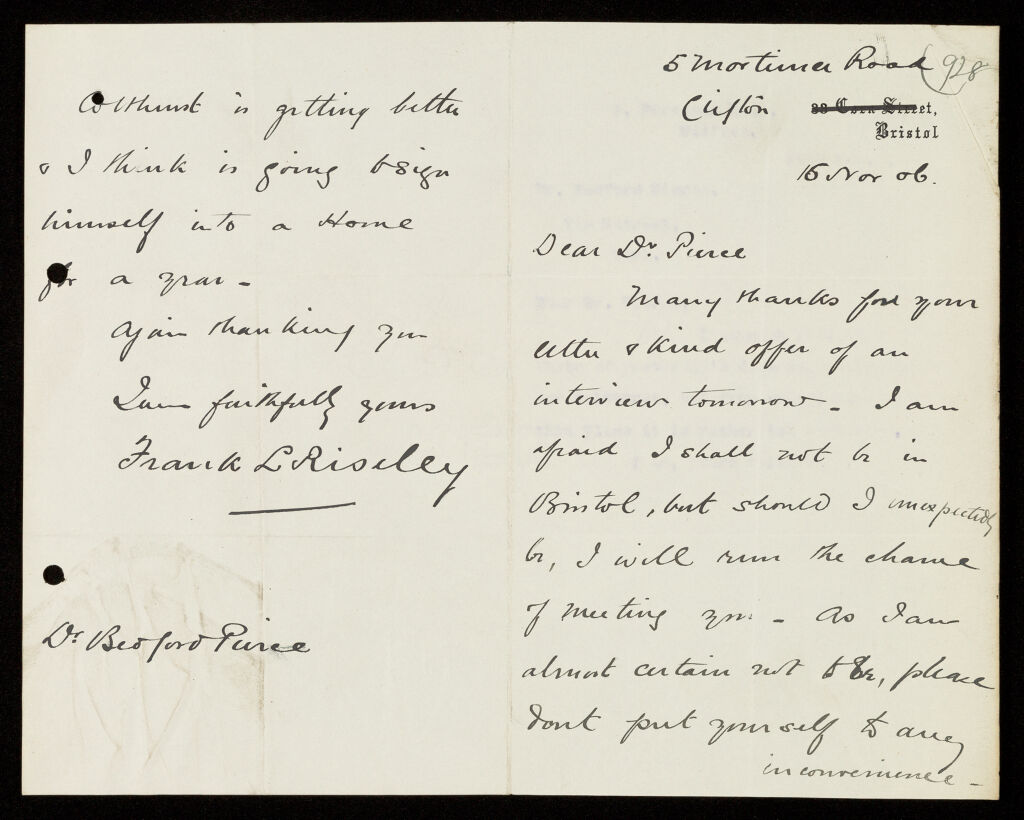 5 Mortimer Road
928
Clifton
28 Corn Street,
Bristol
15 Nov 06.
Dear Dr. Pierce
Many thanks for your
letter & kind offer of an
interview tomorrow - I am
afraid I shall not be in
Bristol, but should I unexpectedly
be, I will run the chance
of meeting you - As I am
almost certain not to be, please
dont put yourself to any
inconvenience -
Colthurst is getting better
& I think is going to sign
himself into a Home
for a year -
Again thanking you
I am faithfully yours
Frank L Riseley
Dr. Bedford Pierce